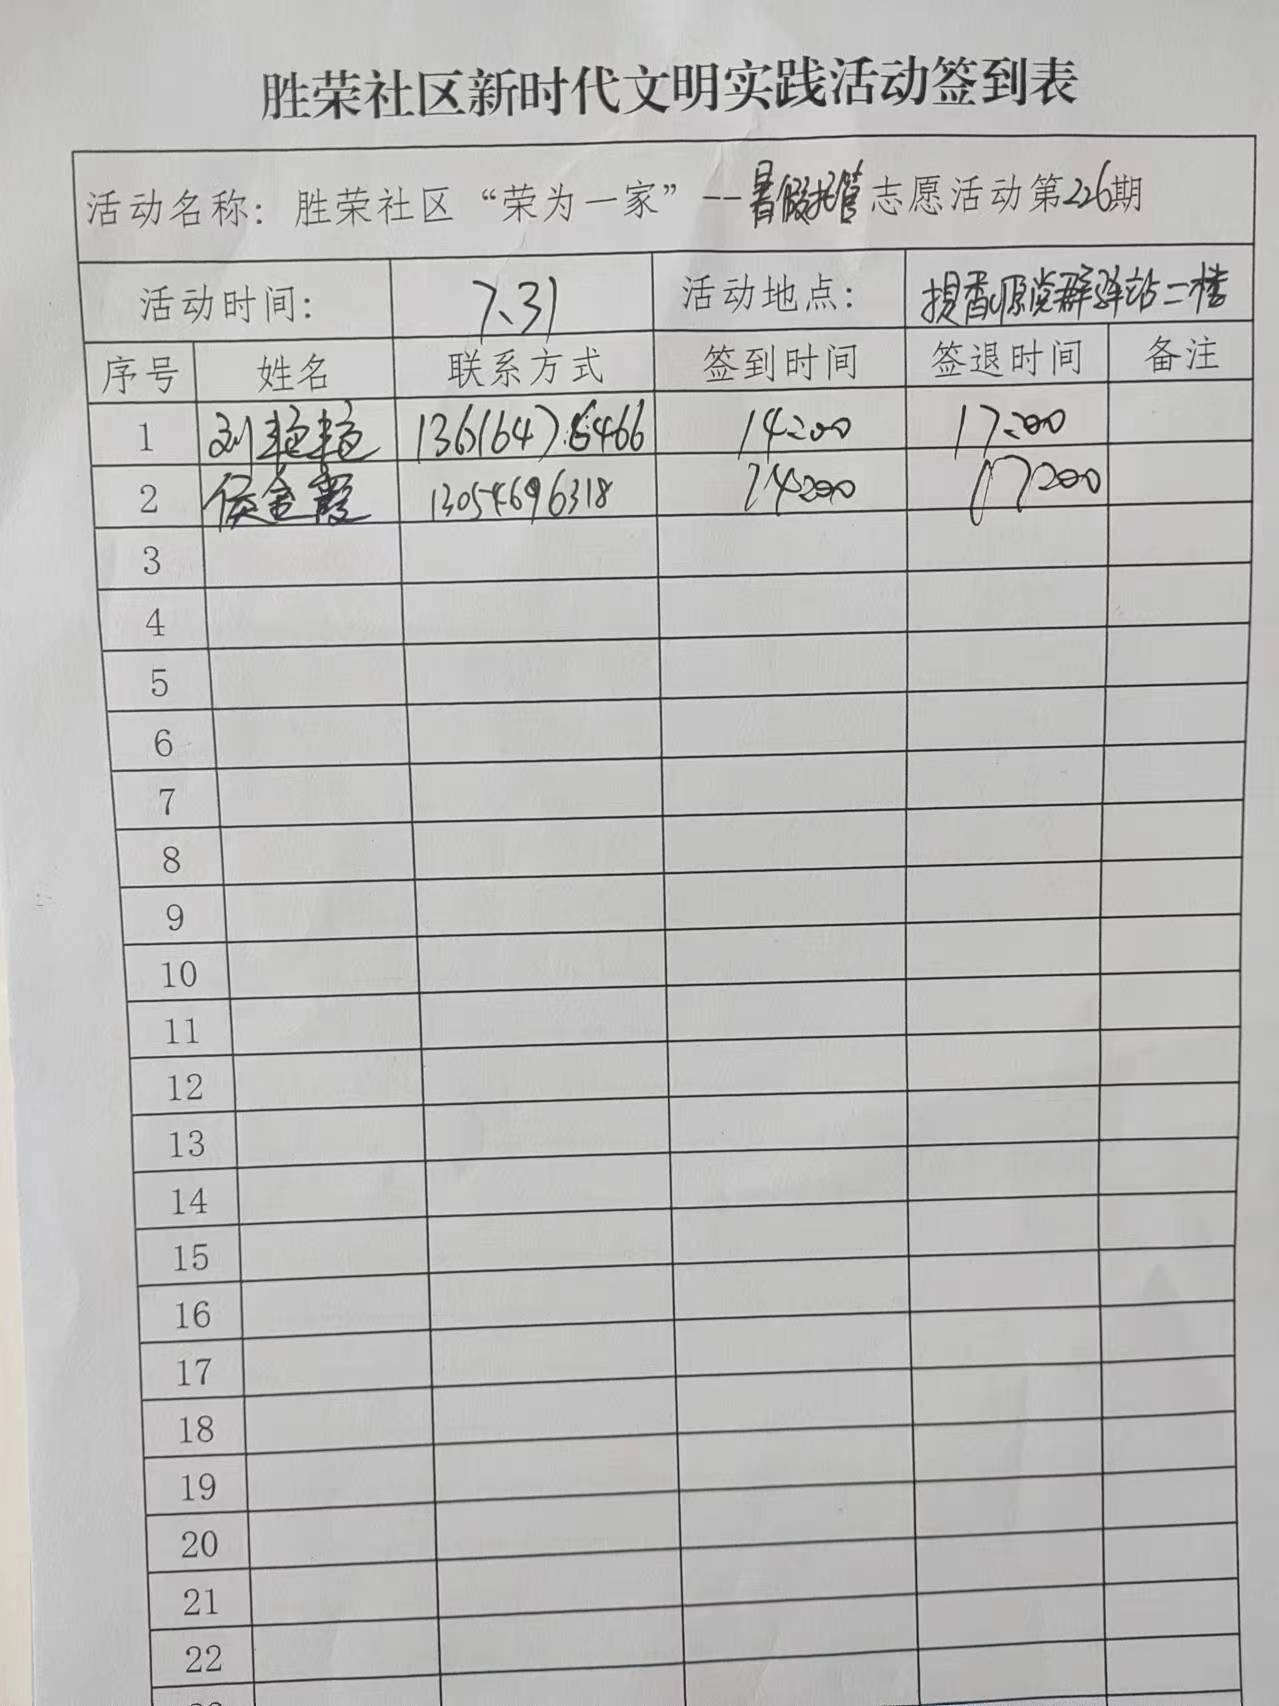 胜荣社区新时代文明实践活动签到表
活动名称：胜荣社区“荣为一家”--暑假托管志愿活动第226期
活动时间： 7.31 活动地点： 香源党群驿站二楼
序号 姓名 联系方式 签到时间 签退时间 备注
1 刘艳艳 14:00 17:00
2 侯金霞 13054696318 14:00 17:00
3
4
5
6
7
8
9
10
11
12
13
14
15
16
17
18
19
20
21
22